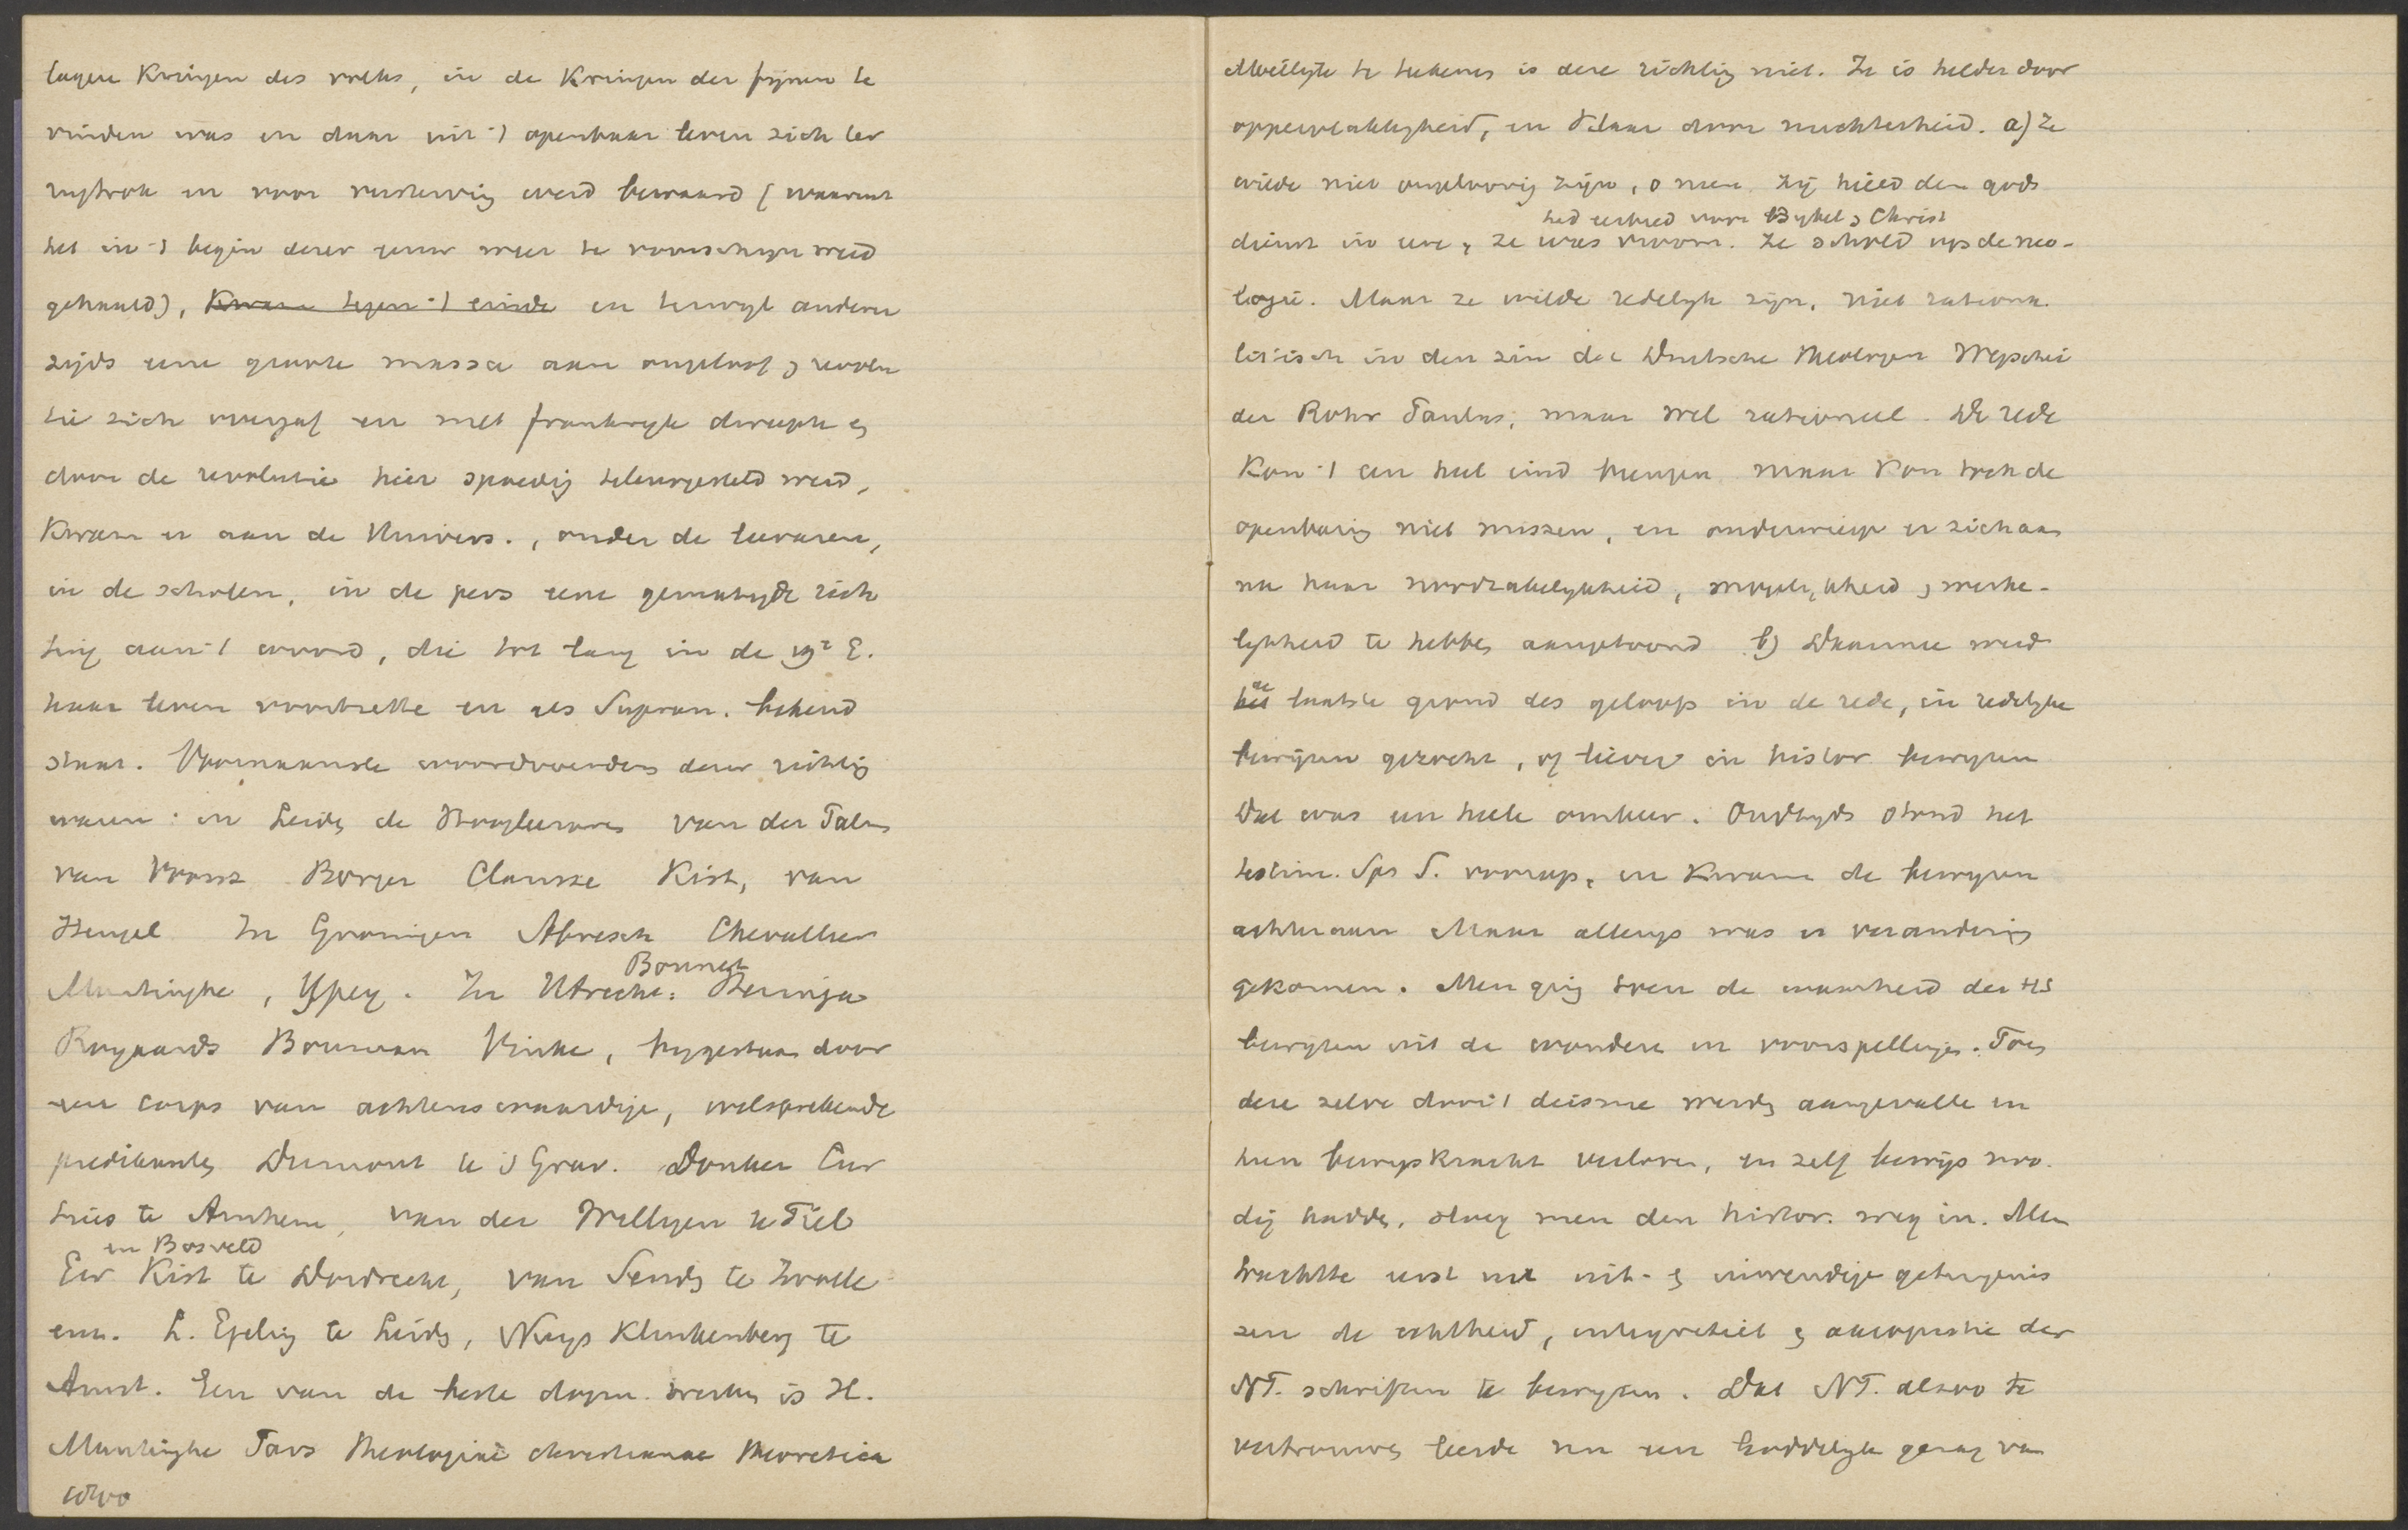 lagere Kringen des volks, in de Kringen der fijnen te
vinden was en daar uit 't openbaar leven zich ter
rugtrok en voor versterving werd bewaard (waaruit
het in 't begin dezer eeuw weer te voorschijn werd
gehaald), Kwam tegen 't einde en terwijl anderer
zijds eene groote massa aan ongeloof & revolu
tie zich overgaf en met Frankrijk dweepte &
door de revolutie hier spoedig teleurgesteld werd,
Kwam er aan de Univers., onder de leeraren,
in de scholen, in de pers eene gematigde rich
ting aan 't woord, die tot lang in de 19e E.
haar leven voortzette en als Supran. bekend
staat. Voornaamste woordvoerders dezer richting
waren: in Leiden de Hoogleeraren van der Palm
van Voorst Borger Clarisse Kist, van
Hengel In Groningen Abresch Chevallier
Muntinghe, Ypey. In Utrecht: Heringa
Bonnet
Royaards Bouman Vinke, bijgestaan door
een corps van achtenswaardige, welsprekende
predikanten Dermout te 's Grav. Donker Cur
tius te Arnhem, van der Willigen te Tiel
en Bosveld
Ew Kist te Dordrecht, van Senden te Zwolle
enz. L. Egeling te Leiden, Nuys Klinkenberg te
Amst. Een van de beste dogm. werken is H.
Muntinghe Pars Theologiae christianae theoretica
1800
Moeilijk te teekenen is deze richting niet. Ze is helder door
oppervlakkigheid, en klaar door nuchterheid. a) Ze
wilde niet ongeloovig zijn, o neen. zij hield den gods
had eerbied voor Bijbel & Christ
dienst in eere, ze was vroom. Ze schold op de neo-
logie. Maar ze wilde redelijk zijn, niet rationa
listisch in den zin der Duitsche theologen Wegschei
der Rohr Paulus; maar wel rationeel. De rede
Kon 't een heel eind brengen maar Kon toch de
openbaring niet missen, en onderwierp er zich aan
na haar noodzakelijkheid, mogelijkheid & werke-
lijkheid te hebben aangetoond b) Daarmee werd
de
het laatste grond des geloofs in de rede, in redelijke
bewijzen gezocht, of liever in histor bewijzen
Dat was een heele omkeer. Oudtijds stond het
testim. Sps S. voorop, en Kwamen de bewijzen
achteraan Maar allengs was er verandering
gekomen. Men ging toen de waarheid der HS
bewijzen uit de wonderen en voorspellingen. Toen
deze zelve door 't deisme werden aangevallen en
hun bewijskracht verloren, en zelf bewijs noo
dig hadden, sloeg men den histor. weg in. Men
trachtte eerst met uit- & inwendige getuigenis
sen de echtheid, integriteit & axiopistie der
NT. schriften te bewijzen. Dat NT. alzoo te
vertrouwen leerde nu een Goddelijk gezag van